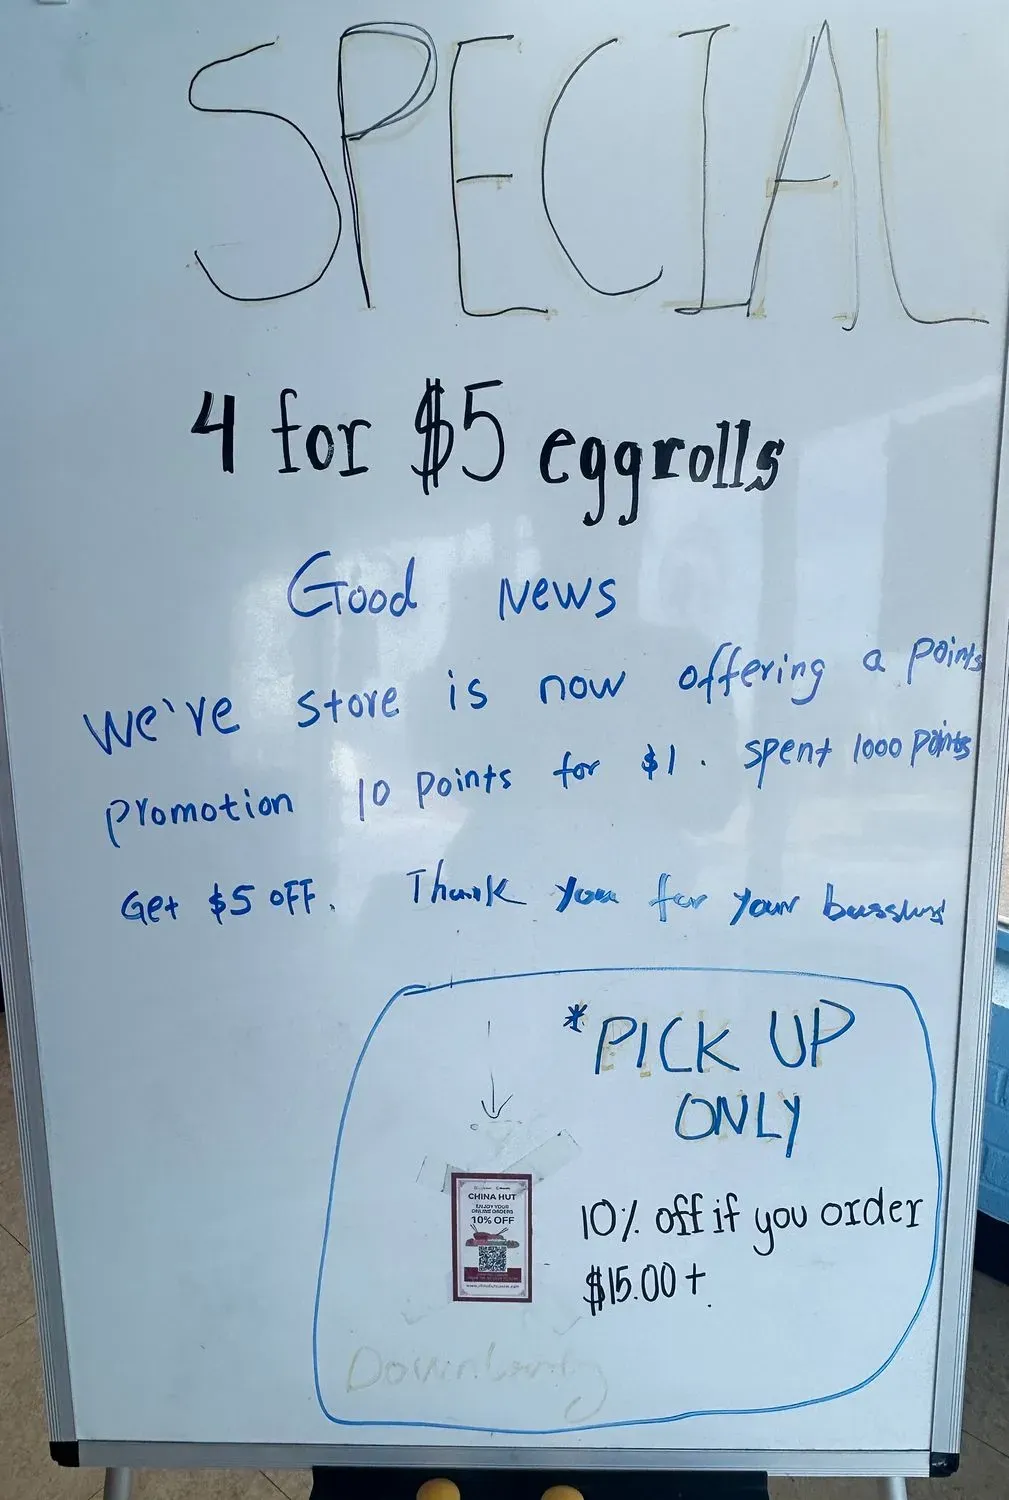 SPECIAL
4 for $5 eggrolls
Good News
We've store is now offering a points
promotion 10 points for $1. spent 1000 points
Get $5 OFF. Thank you for your
*PICK UP
ONLY
CHINA HUT
ENJOY YOUR
ONLINE ORDERS
10% OFF
10% off if you order
$15.00+.